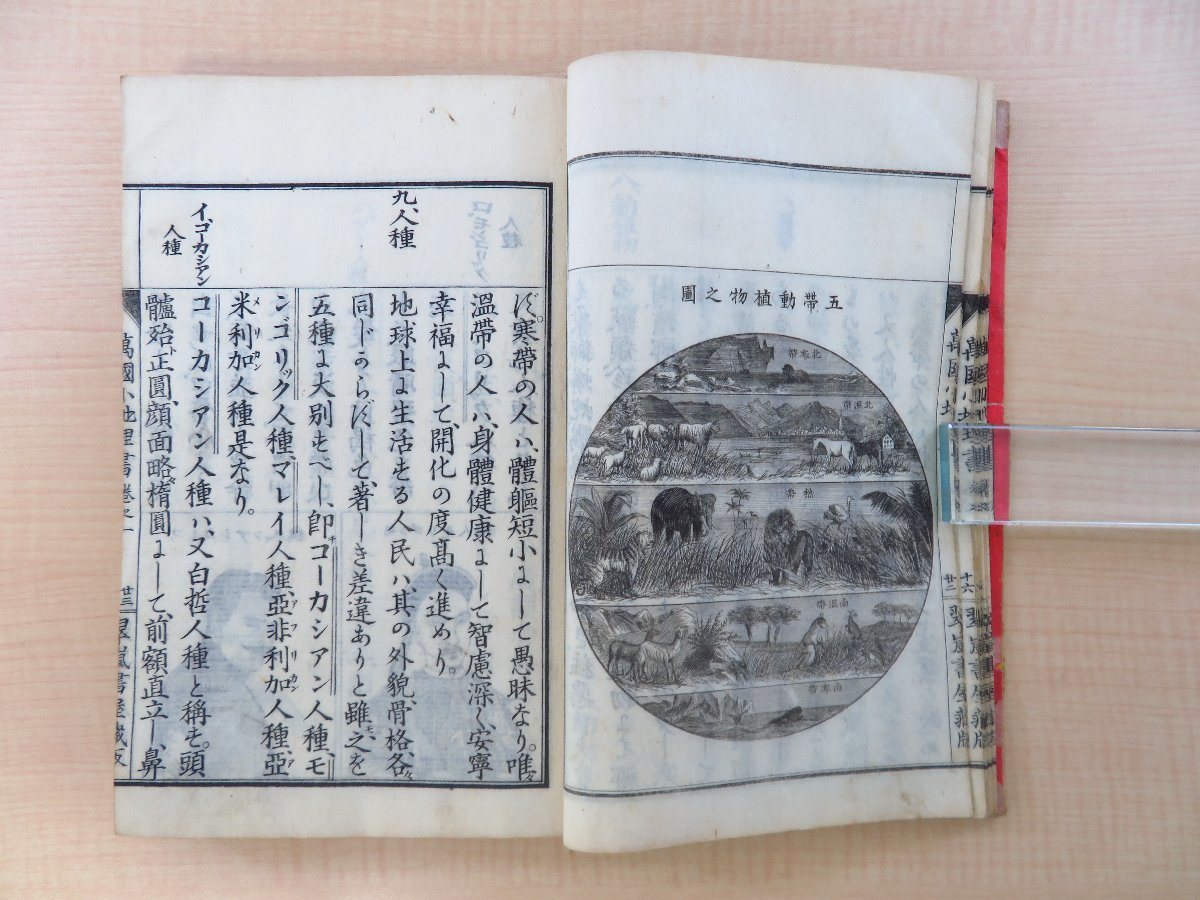 五帶動植物之圖
北寒帶
北溫帶
熱帶
南溫帶
南寒帶
九、人種
イ、ゴーカシアン
人種
ず。寒帶の人ハ、體軀短小にして愚昧なり。唯
溫帶の人ハ、身體健康にして智慮深く、安寧
幸福にして、開化の度高く進めり。
地球上に生活する人民ハ、其の外貌、骨格、各
同じからずして、著しき差違ありと雖、之を
五種に大別すべし、卽コーカシアン人種、モ
ンゴリック人種、マレイ人種、亞非利加人種、亞
米利加人種是なり。
コーカシアン人種ハ、又白晳人種と稱す。頭
髗殆正圓、顏面略楕圓にして、前額直立し、鼻
萬國小地理書卷之一
廿三